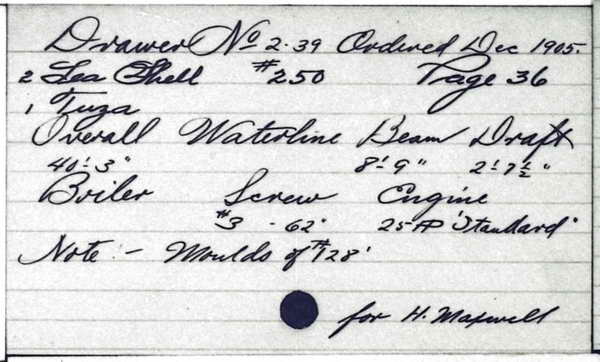 Drawer No 2-39 Ordered Dec 1905.
2 Sea Shell #250 Page 36
1 Tuza
Overall Waterline Beam Draft
40'-3" 8'-9" 2'-7½"
Boiler Screw Engine
#3 - 62" 25 HP "Standard"
Note:- Moulds of #128'
for H. Maxwell